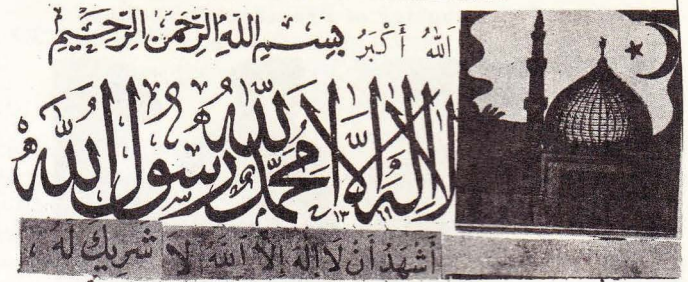 اَللّٰهُ أَكْبَرُ بِسْمِ اللهِ الرَّحْمٰنِ الرَّحِيْمِ
لا اله الا الله محمد رسول الله
١٣
أَشْهَدُ أَنْ لَا إِلٰهَ إِلاَّ اللهُ لاَ شَرِيكَ لَهُ ،